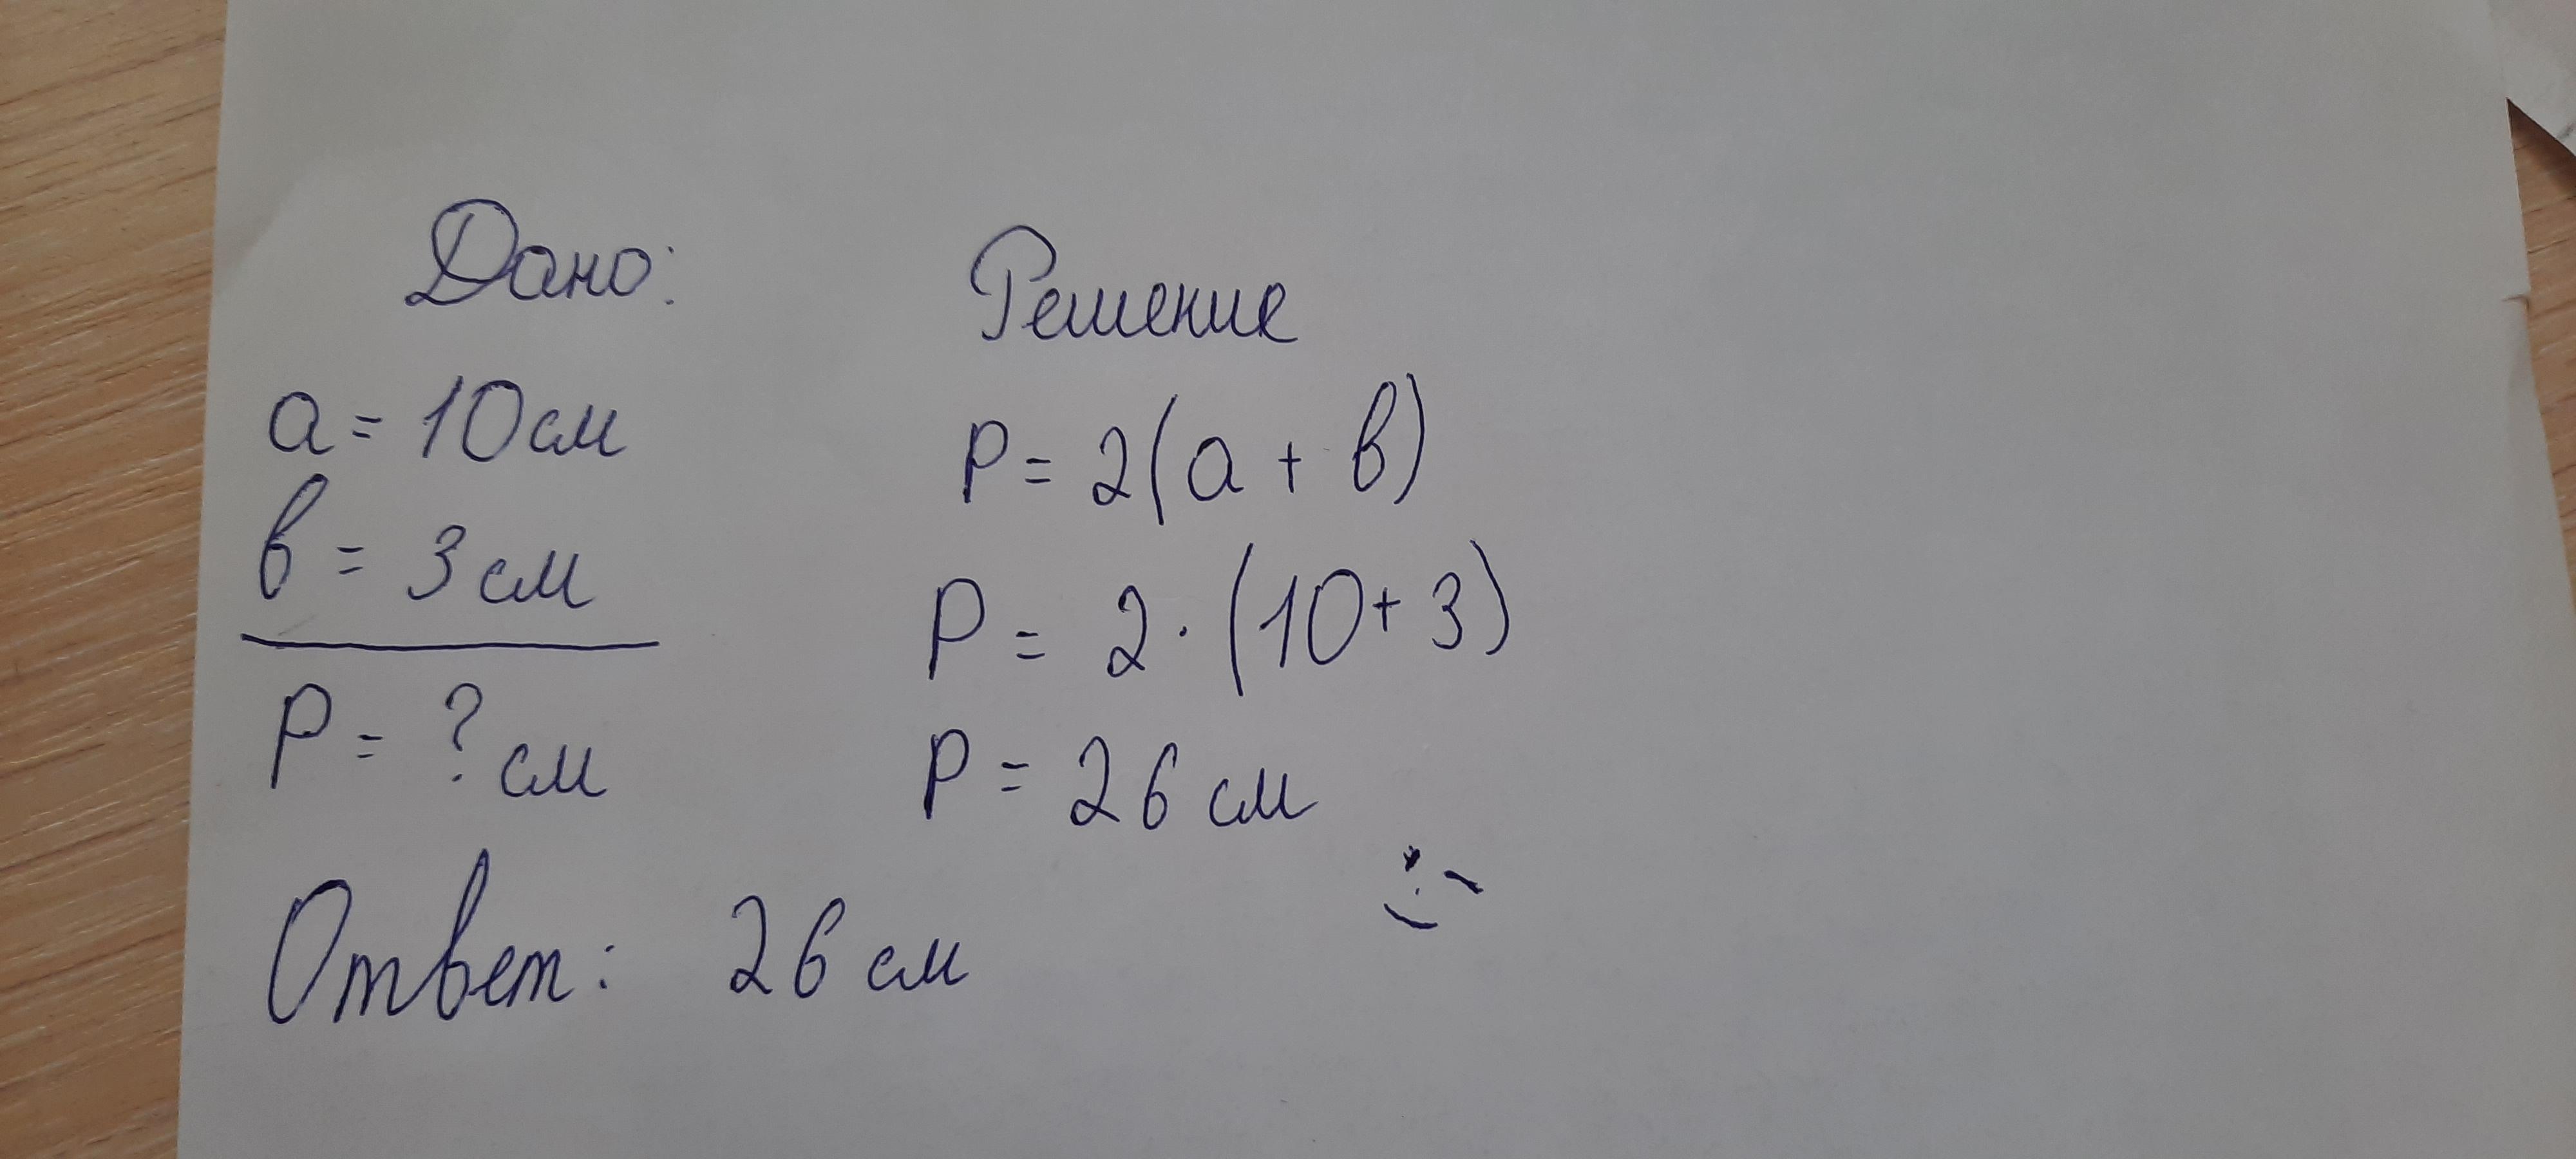 Дано:
a = 10 см
в = 3 см
P = ? см
Решение
P = 2(a + в)
P = 2 · (10 + 3)
P = 26 см
Ответ: 26 см